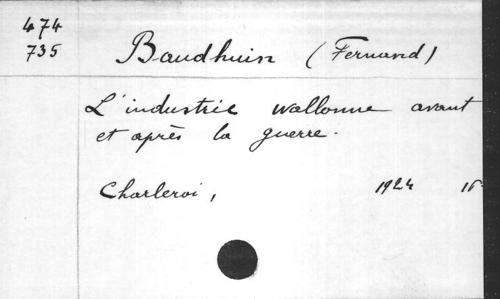 474
735
Baudhuin (Fernand)
L'industrie wallonne avant
et après la guerre.
Charleroi, 1924 16